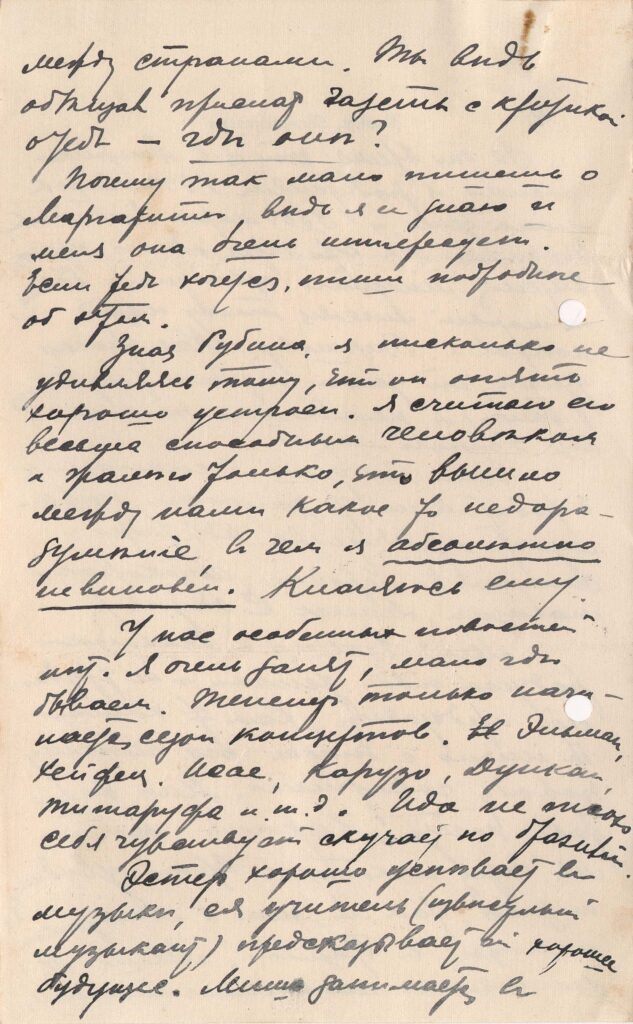 между странами. Ты видь
обѣщав прислать газеты с критикой
о тебѣ – гдѣ они?
Почему так мало пишешь о
Маргаритѣ, вѣдь я и знаю и
меня она очень интересует.
Если тебѣ хочется, пиши подробнѣе
об этом.
Зная Рубина, я нисколько не
удивляюсь тому, что он опять
хорошо устроен. Я считаю его
весьма способным человѣком
и жалѣю только, что вышло
между нами какое то недора-
зумѣние в чем я абсолютно
невиновен. Кланяюсь ему.
У нас особенных новостей
нѣт. Я очень занят, мало гдѣ
бываем. Теперь только начи-
нается сезон концертов. Эльман,
Хейфец, Исае, Карузо, Дункан,
Титаруфа и.т.д. Ида не плохо
себя чувствует скучает по Бразилии.
Эстер хорошо успѣвает в
музыкѣ, ея учитель (
музыкант) предсказывает ей хорошее
будущее. Миша занимается в